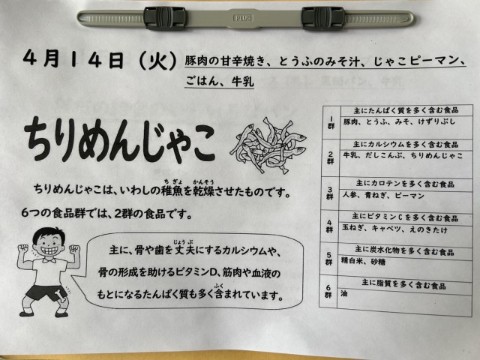 4月14日（火）
豚肉の甘辛焼き、とうふのみそ汁、じゃこピーマン、
ごはん、牛乳
ちりめんじゃこ
ちりめんじゃこは、いわしの稚魚を乾燥させたものです。
ちぎょ かんそう
6つの食品群では、2群の食品です。
主に、骨や歯を丈夫にするカルシウムや、
じょうぶ
骨の形成を助けるビタミンD、筋肉や血液の
もとになるたんぱく質も多く含まれています。
ふく
1群
主にたんぱく質を多く含む食品
豚肉、とうふ、みそ、けずりぶし
2群
主にカルシウムを多く含む食品
牛乳、だしこんぶ、ちりめんじゃこ
3群
主にカロテンを多く含む食品
人参、青ねぎ、ピーマン
4群
主にビタミンCを多く含む食品
玉ねぎ、キャベツ、えのきたけ
5群
主に炭水化物を多く含む食品
精白米、砂糖
6群
主に脂質を多く含む食品
油